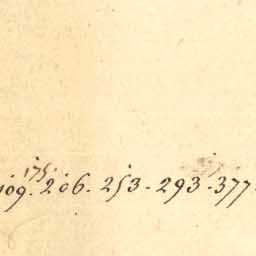 175.
109. 206. 253. 293. 377.